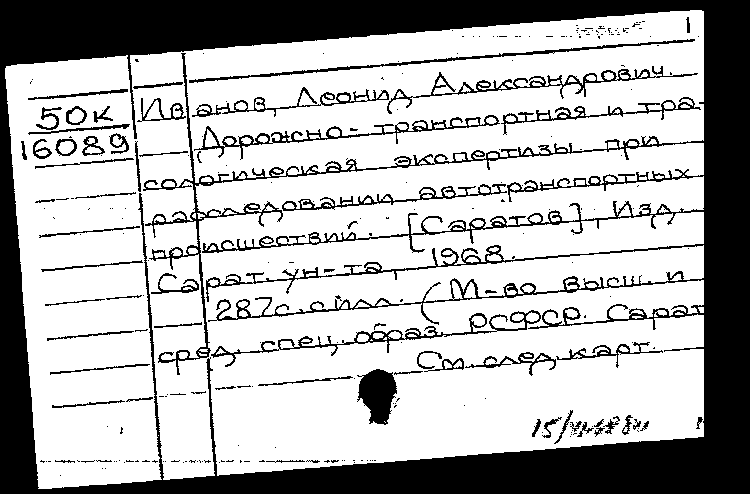 1
50к
16089
Иванов, Леонид Александрович.
Дорожно-транспортная и тра-
сологическая экспертизы при
расследовании автотранспортных
происшествий. [Саратов], Изд.
Сарат. ун-та, 1968.
287с. с илл. (М-во высш. и
сред. спец. образ. РСФСР. Сарат
См. след. карт.
15/